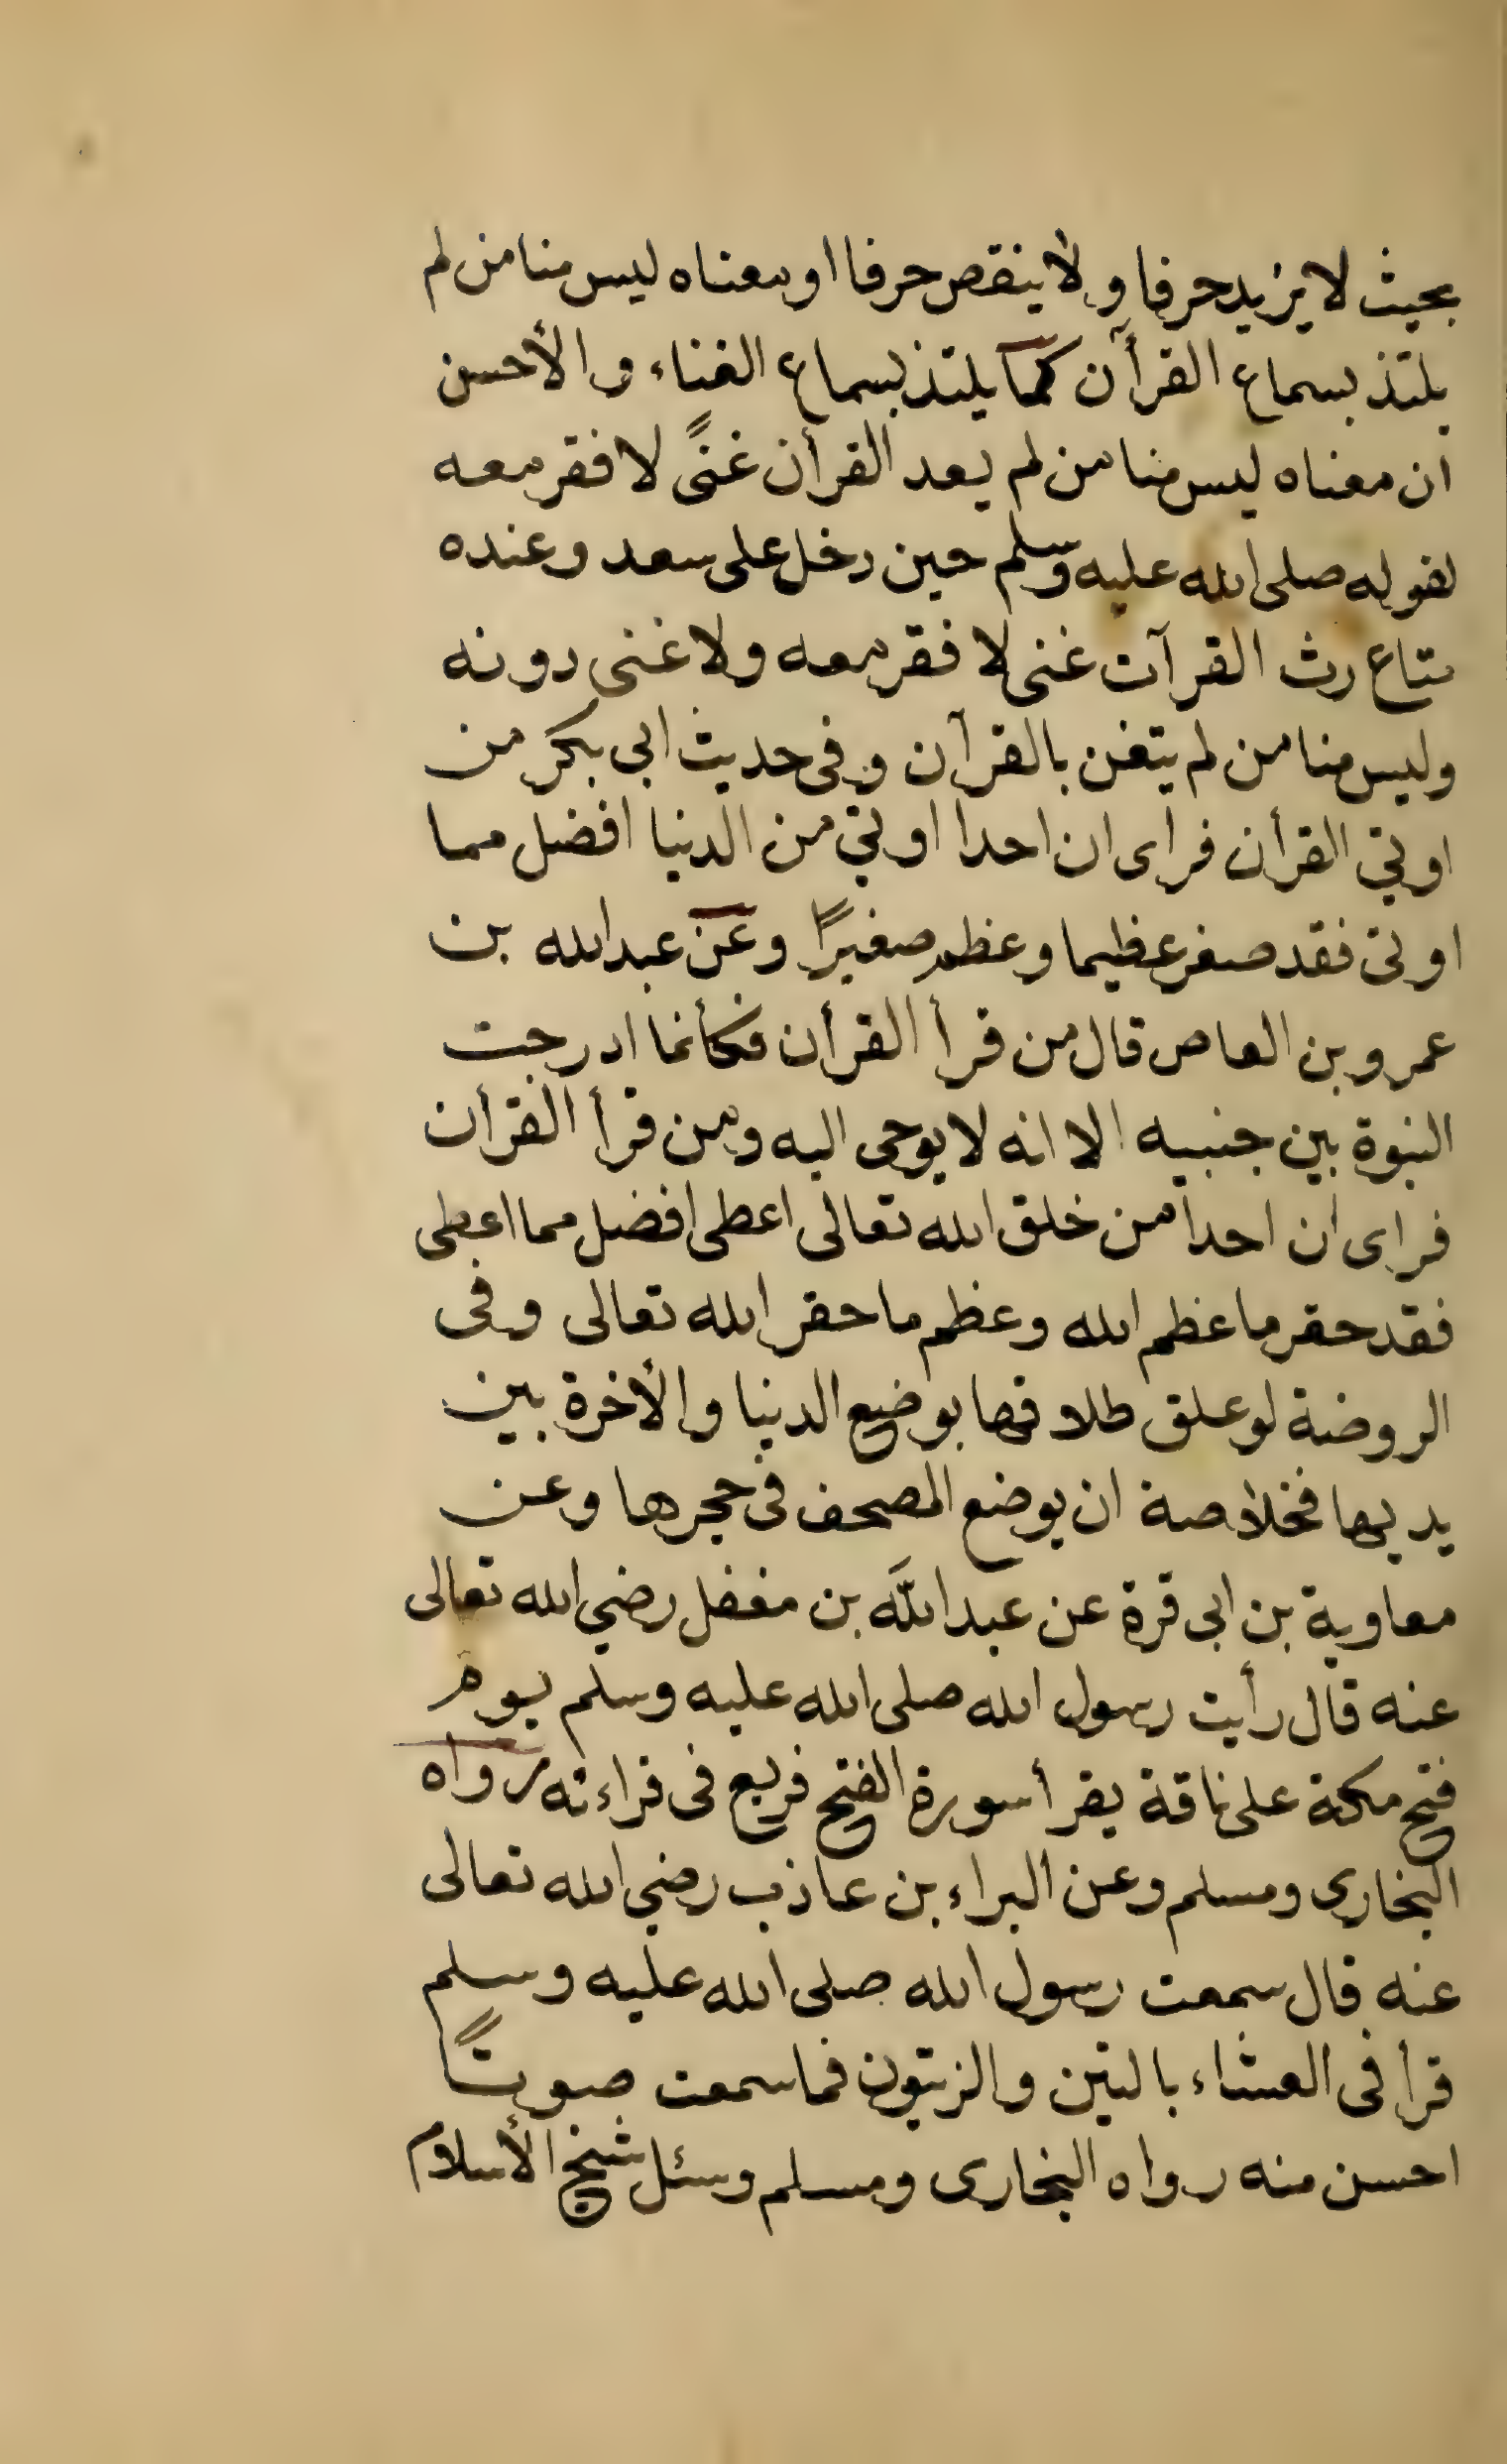 بحيث لا يزيد حرفا ولا ينقص حرفا او معناه ليس منا من لم
يلتذ بسماع القرآن كما يلتذ بسماع الغناء والأحسن
ان معناه ليس منا من لم يعد القرأن غنًى لا فقر معه
لقوله صلى الله عليه وسلم حين دخل على سعد وعنده
متاع رث القرآن غنى لا فقر معه ولا غنى دونه
وليس منا من لم يتغن بالقرآن وفى حديث ابى بكر من
اوتي القرأن فراى ان احدا اوتي من الدنيا افضل مما
اوتى فقد صغر عظيما وعظم صغيرًا وعن عبد الله بن
عمرو بن العاص قال من قرأ القرأن فكأنما ادرجت
النبوة بين جنبيه الا انه لا يوحى اليه ومن قرأ القرأن
فراى ان احدا من خلق الله تعالى اعطى افضل مما اعطى
فقد حقر ما عظم الله وعظم ما حقر الله تعالى وفى
الروضة لو علق طلاقها بوضع الدنيا والأخرة بين
يديها فخلاصة ان يوضع المصحف فى حجرها وعن
معاوية بن ابى قرة عن عبد الله بن مغفل رضي الله تعالى
عنه قال رأيت رسول الله صلى الله عليه وسلم يوم
فتح مكة على ناقة يقرأ سورة الفتح فربع فى قراءته رواه
البخارى ومسلم وعن البراء بن عاذب رضي الله تعالى
عنه قال سمعت رسول الله صلى الله عليه وسلم
قرأ فى العشاء بالتين والزيتون فما سمعت صوتًا
احسن منه رواه البخارى ومسلم وسئل شيخ الأسلام